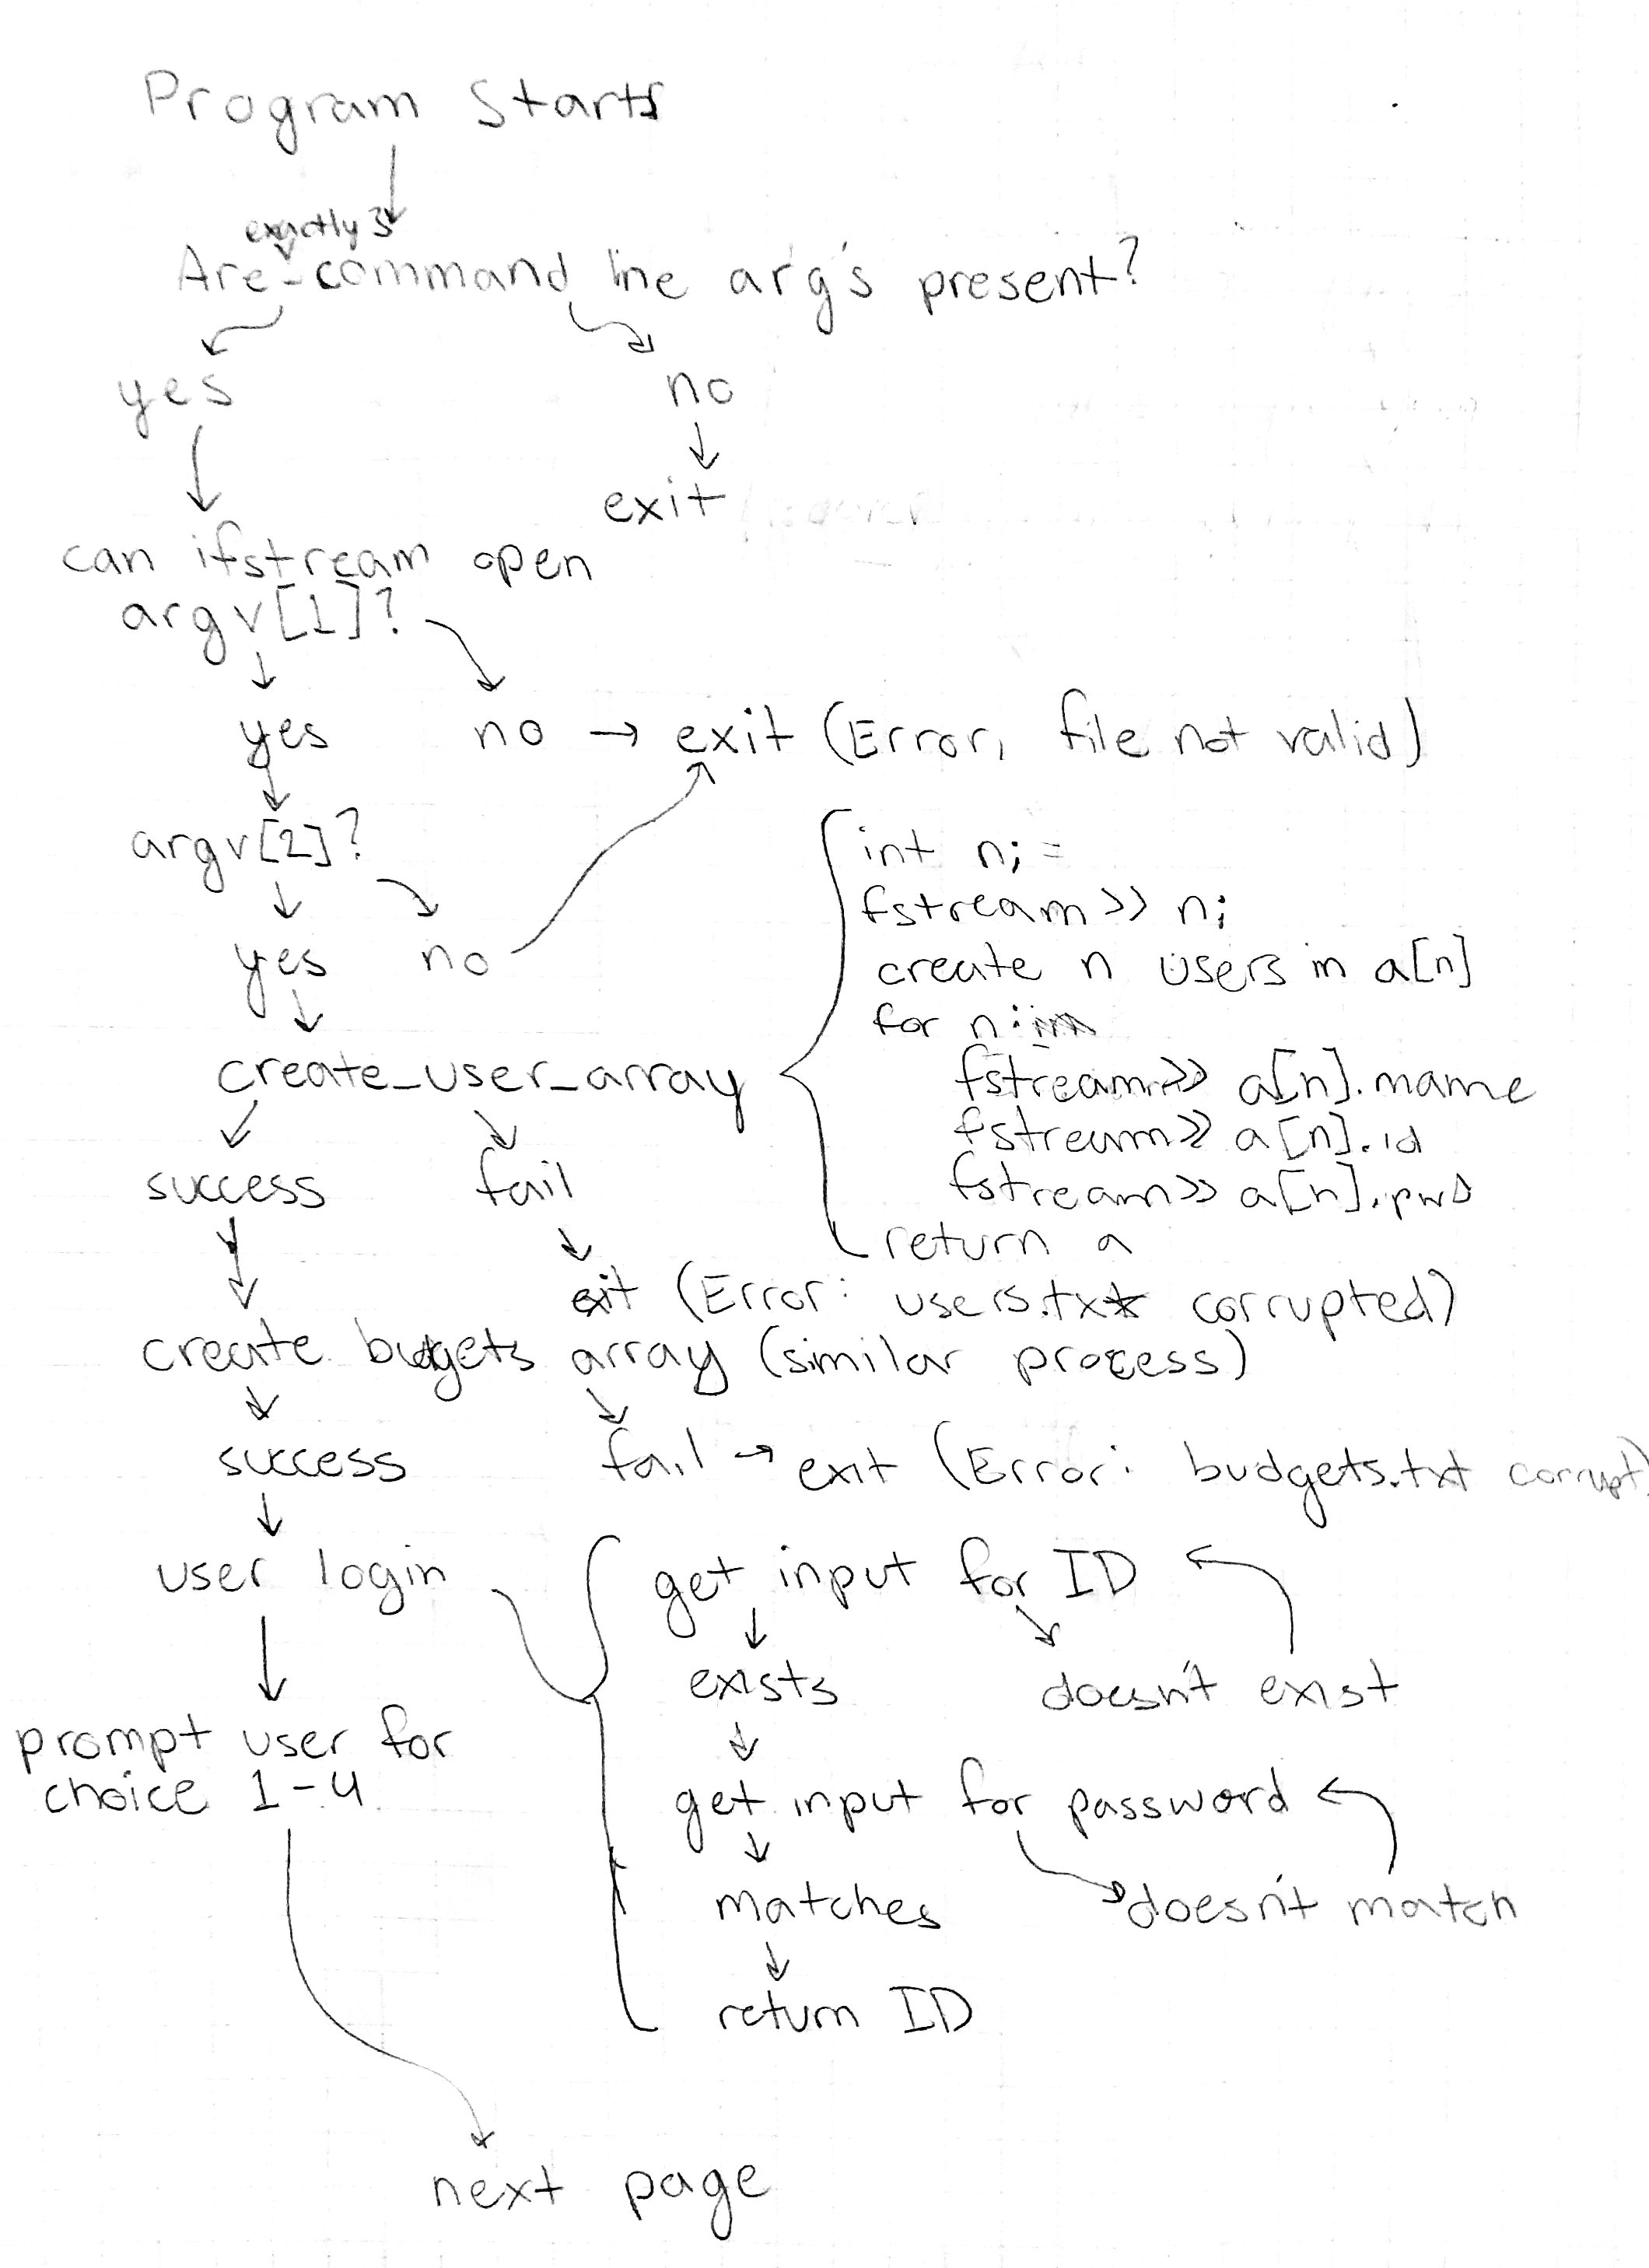 Program Starts
exactly 3
Are command line arg's present?
yes
no
exit
can ifstream open
argv[1]?
yes
no → exit (Error, file not valid)
argv[2]?
yes
no
create_user_array
int n; =
fstream >> n;
create n users in a[n]
for n:
fstream >> a[n].name
fstream >> a[n].id
fstream >> a[n].pwd
return a
success
fail
exit (Error: users.txt corrupted)
create budgets array (similar process)
success
fail → exit (Error: budgets.txt corrupt)
user login
get input for ID
exists
doesn't exist
get input for password
matches
doesn't match
return ID
prompt user for
choice 1-4
next page